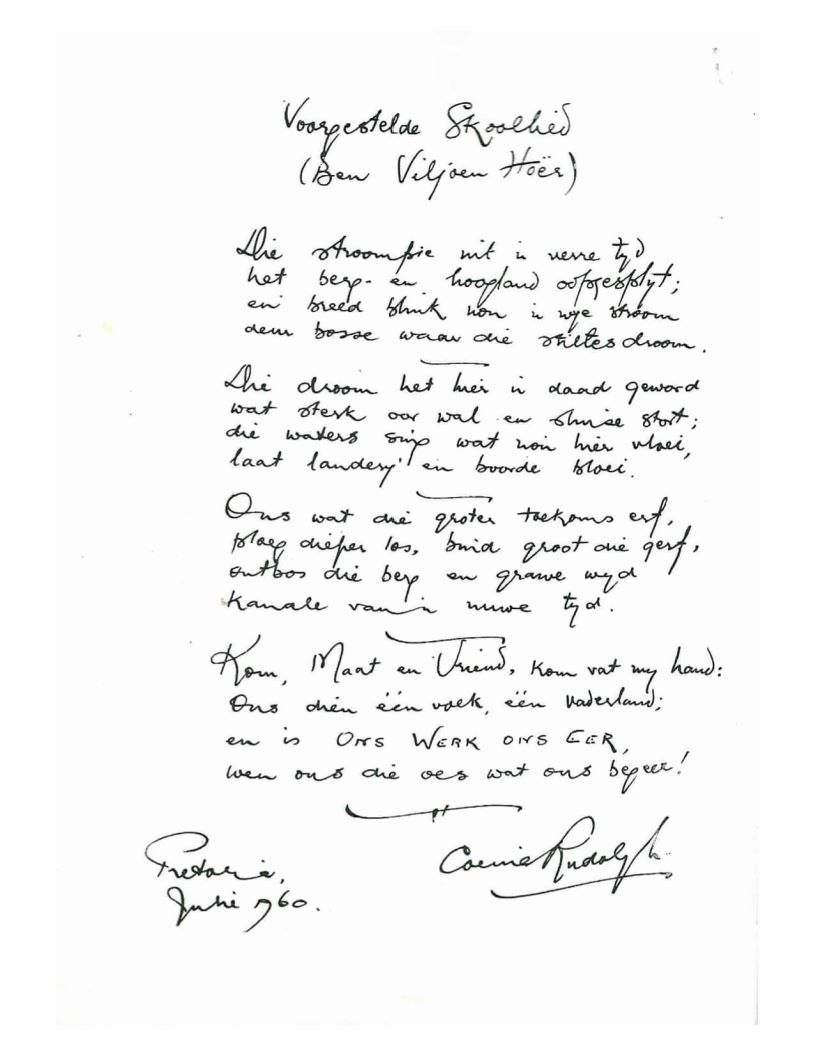 Voorgestelde Skoollied
(Ben Viljoen Hoër)
Die stroompie uit 'n verre tyd
het berg- en hoogland oopgesplyt;
en breed blink nou 'n wye stroom
deur bosse waar die stiltes droom.
Die droom het hier 'n daad geword
wat sterk oor wal en sluise stort;
die waters sing wat nou hier vloei,
laat landery' en boorde bloei.
Ons wat die groter toekoms erf,
ploeg dieper los, bind groot die gerf,
ontbos die berg en grawe wyd
kanale van 'n nuwe tyd.
Kom, Maat en Vriend, kom vat my hand:
Ons dien één volk, één Vaderland;
en is ONS WERK ONS EER,
wen ons die oes wat ons begeer!
Pretoria,
Julie 1960.
Coenie Rudolph.